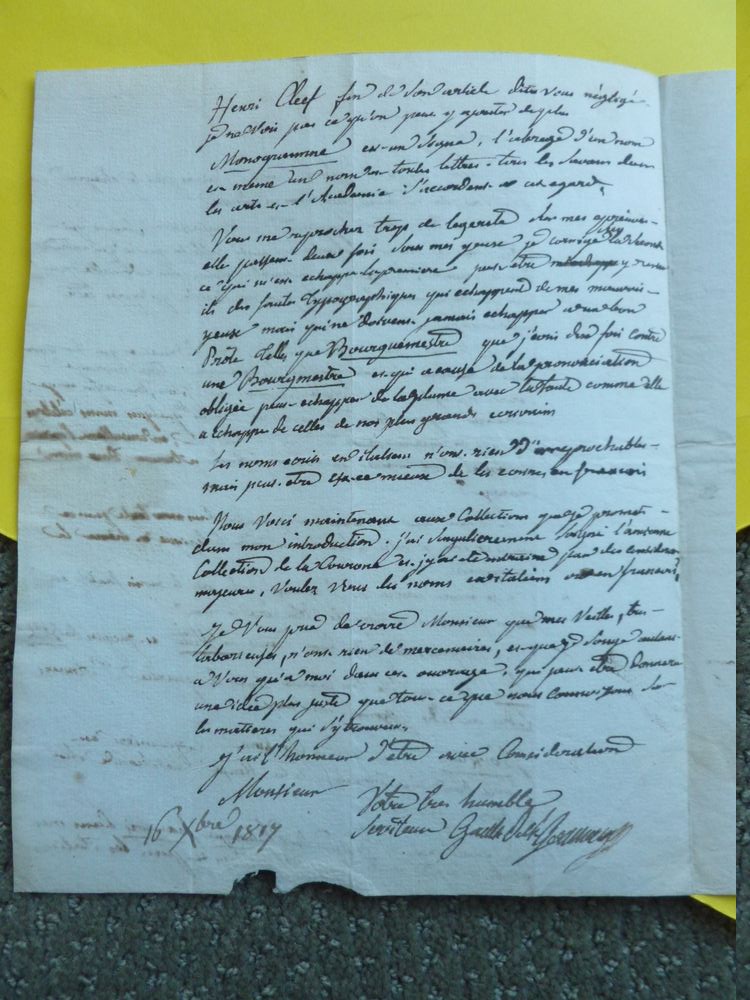 Henri Cleef fin de son article dites vous négligé
je ne vois pas ce qu'on peut y ajouter de plus
Monogramme est un signe, l'abregé d'un nom
et meme un nom en toutes lettres. tous les savans dans
les arts et l'Academie s'accordent a cet egard,
Vous me reprochez trop de legereté dans mes epreuves
elle passent deux fois sous mes yeux je corrige la seconde
ce qui m'est echappé la premiere peut etre y
ils des fautes typographiques qui echappent de mes mauvais
yeux mais qui ne doivent jamais echapper a un bon
Prote telles que Bourguemestre que j'ecris dix fois contre
une Bourgmestre et qui a cause de la prononciation
obligée peut echapper de la plume avec la faute comme elle
a echappé de celles de nos plus grands ecrivains
Les noms ecrits en italien n'ont rien d'irreprochables
mais peut etre est-ce mieux de les ecrire en francais
Nous voici maintenant aux Collections que je promets
dans mon introduction. j'ai singulierement soigné l'ancienne
Collection de la Couronne et j'y ai eté par des
majeures, Voulez vous les noms en italien ou en francais?
Je Vous prie de croire Monsieur que mes Veilles, tres
laborieuses, n'ont rien de mercenaires, et que je songe autant
a Vous qu'a moi dans cet ouvrage, qui peut etre donnera
une idée plus juste que tout ce que nous connaissons sur
les matieres qui s'y trouvent,
J'ai l'honneur d'etre avec Consideration
Monsieur
Votre tres humble
Serviteur Gault de St Germain
16 Xbre 1817